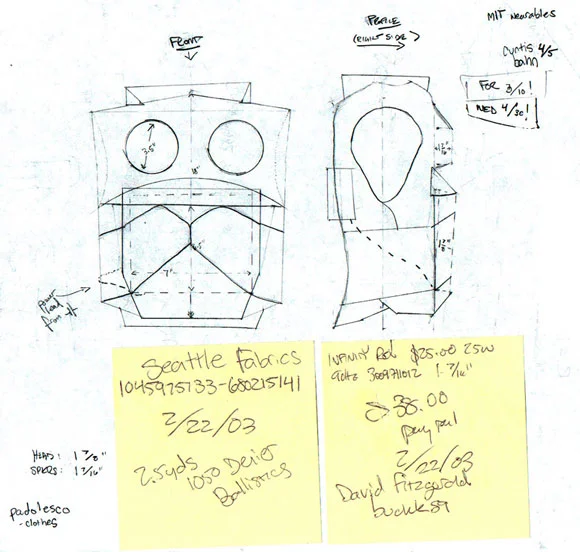 FRONT
PROFILE
(RIGHT SIDE)
MIT Wearables
curtis 4/5
bahn
FOR 3/10!
NED 4/30!
3.5"
18"
6.5"
7"
power
lead
from
Seattle Fabrics
1045975733-680215141
2/22/03
2.5yds
1050 Denier
Ballistics
INFINITY Rd $25.00 25W
90Hz 3009771012 1-7/16"
38.00
pay pal
2/22/03
David Fitzgerald
buckk89
HEAD: 1 7/8"
SPKRS: 1 7/16"
padolesco
-clothes